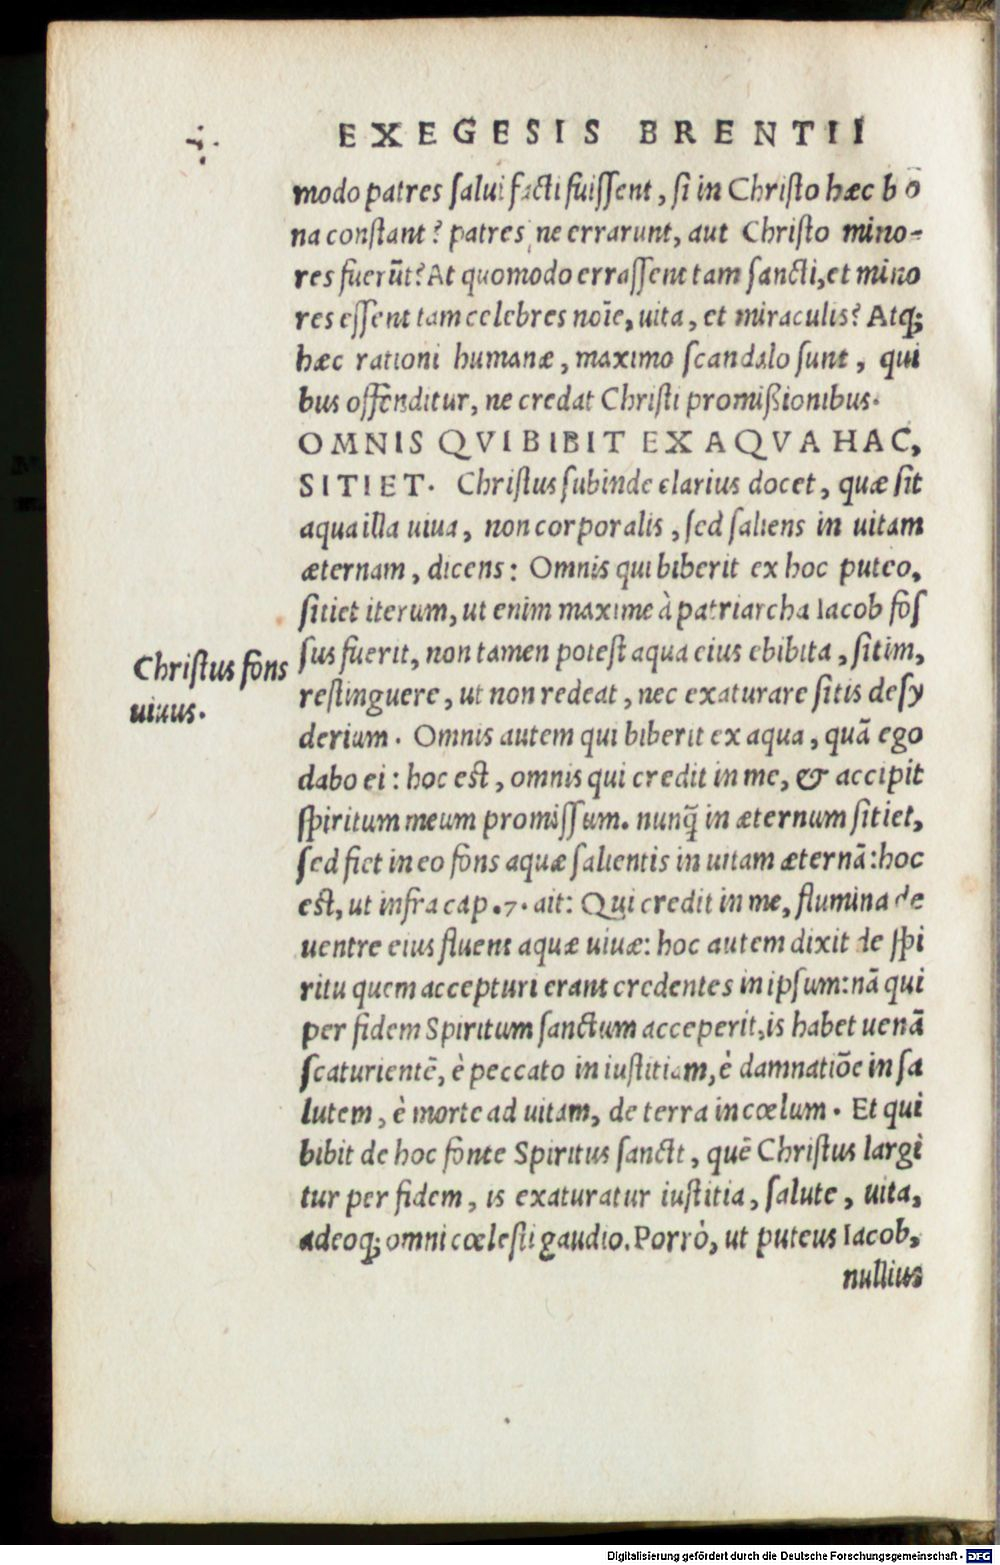 EXEGESIS BRENTII
modo patres ſalui facti fuiſſent, ſi in Chriſto hæc b ō
na conſtant? patres ne errarunt, aut Chriſto mino-
res fuerūt? At quomodo erraſſent tam ſancti, et mino
res eſſent tam celebres noīe, uita, et miraculis? Atq;
hæc rationi humanæ, maximo ſcandalo ſunt, qui
bus offenditur, ne credat Chriſti promißionibus.
OMNIS QVI BIBIT EX AQVA HAC,
SITIET. Chriſtus ſubinde clarius docet, quæ ſit
aqua illa uiua, non corporalis, ſed ſaliens in uitam
æternam, dicens: Omnis qui biberit ex hoc puteo,
ſitiet iterum, ut enim maxime à patriarcha Iacob foſ
ſus fuerit, non tamen poteſt aqua eius ebibita, ſitim,
reſtinguere, ut non redeat, nec exaturare ſitis deſy
derium. Omnis autem qui biberit ex aqua, quā ego
dabo ei: hoc eſt, omnis qui credit in me, & accipit
ſpiritum meum promiſſum. nunq̄ in æternum ſitiet,
ſed fiet in eo fons aquæ ſalientis in uitam æternā: hoc
eſt, ut infra cap. 7. ait: Qui credit in me, flumina de
uentre eius fluent aquæ uiuæ: hoc autem dixit de ſpi
ritu quem accepturi erant credentes in ipſum: nā qui
per fidem Spiritum ſanctum acceperit, is habet uenā
ſcaturientē, è peccato in iuſtitiam, è damnatiōe in ſa
lutem, è morte ad uitam, de terra in cœlum. Et qui
bibit de hoc fonte Spiritus ſancti, quē Chriſtus largi
tur per fidem, is exaturatur iuſtitia, ſalute, uita,
adeoq; omni cœleſti gaudio. Porrò, ut puteus Iacob,
nullius
Chriſtus fons
uiuus.
Digitalisierung gefördert durch die Deutsche Forschungsgemeinschaft - DFG